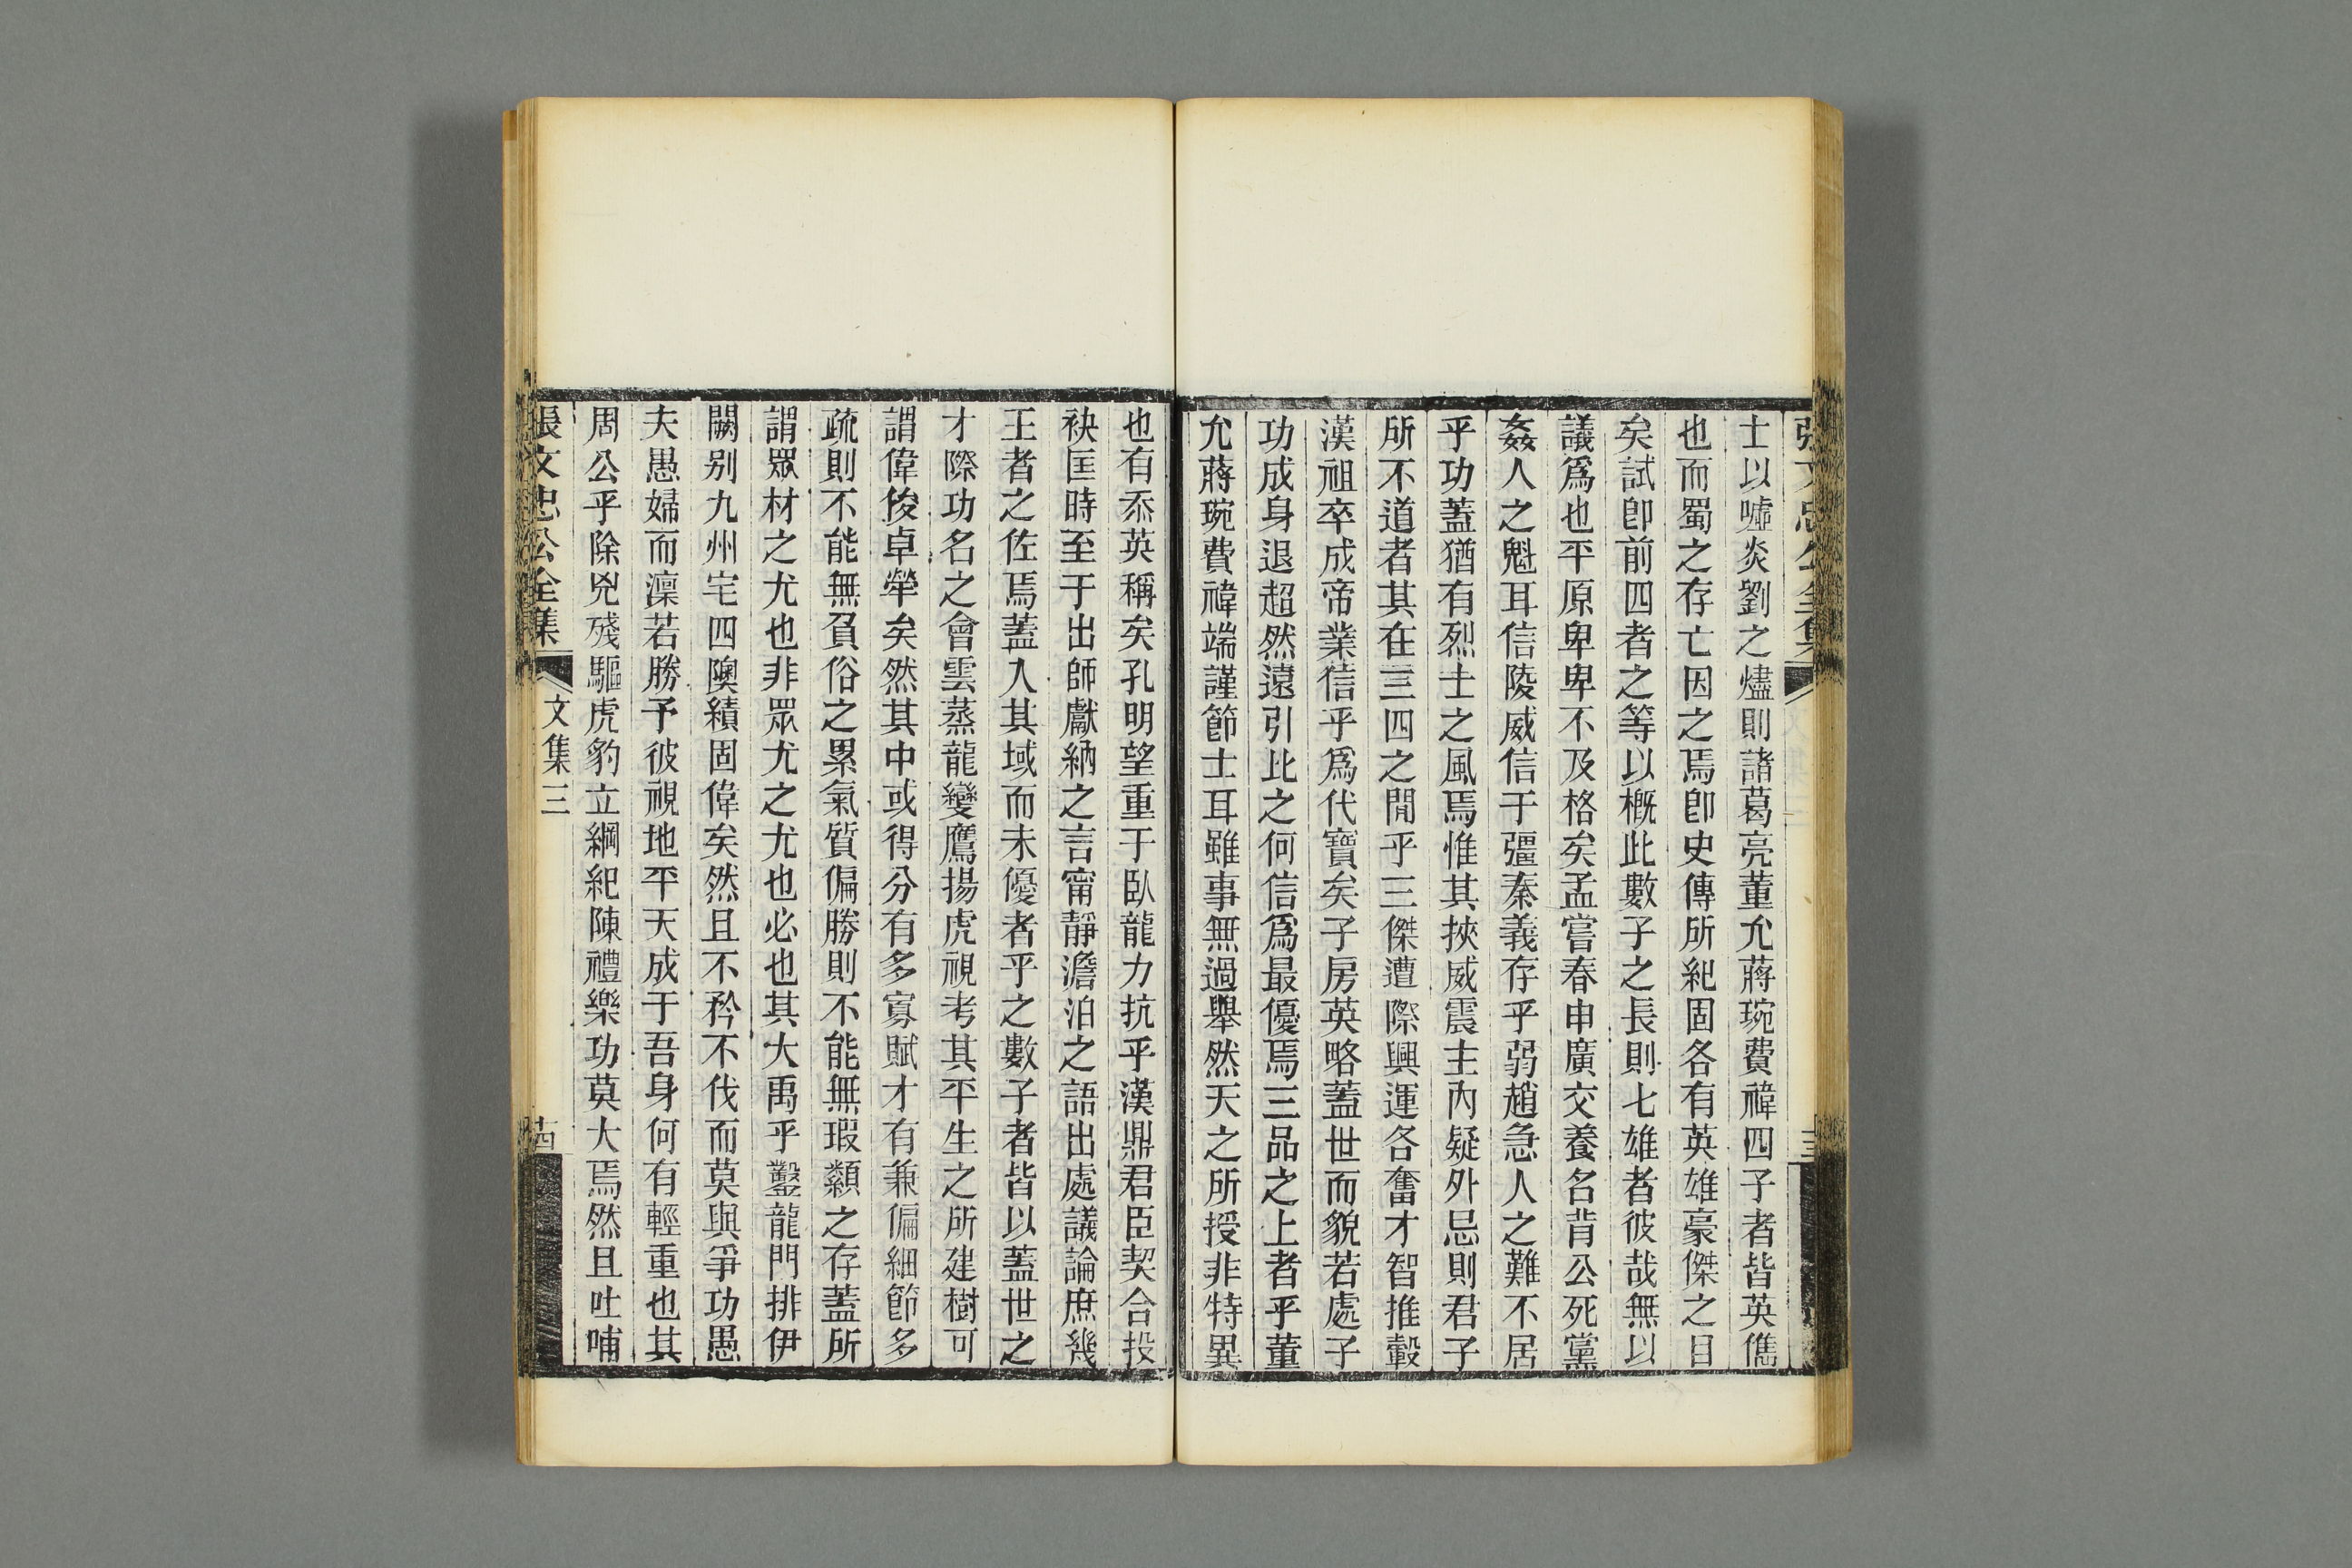 士以噓炎劉之燼則諸葛亮董允蔣琬費禕四子者皆英儁
也而蜀之存亡因之焉卽史傳所紀固各有英雄豪傑之目
矣試卽前四者之等以槪此數子之長則七雄者彼哉無以
議爲也平原卑卑不及格矣孟嘗春申廣交養名背公死黨
姦人之魁耳信陵威信于彊秦義存乎弱趙急人之難不居
乎功蓋猶有烈士之風焉惟其挾威震主內疑外忌則君子
所不道者其在三四之閒乎三傑遭際興運各奮才智推轂
漢祖卒成帝業信乎爲代寶矣子房英略蓋世而貌若處子
功成身退超然遠引比之何信爲最優焉三品之上者乎董
允蔣琬費禕端謹節士耳雖事無過舉然天之所授非特異
也有忝英稱矣孔明望重于臥龍力抗乎漢鼎君臣契合投
袂匡時至于出師獻納之言甯靜澹泊之語出處議論庶幾
王者之佐焉蓋入其域而未優者乎之數子者皆以蓋世之
才際功名之會雲蒸龍變鷹揚虎視考其平生之所建樹可
謂偉俊卓犖矣然其中或得分有多寡賦才有兼偏細節多
疏則不能無負俗之累氣質偏勝則不能無瑕纇之存蓋所
謂眾材之尤也非眾尤之尤也必也其大禹乎鑿龍門排伊
闕別九州宅四隩績固偉矣然且不矜不伐而莫與爭功愚
夫愚婦而凜若勝予彼視地平天成于吾身何有輕重也其
周公乎除兇殘驅虎豹立綱紀陳禮樂功莫大焉然且吐哺
張文忠公全集
文集三